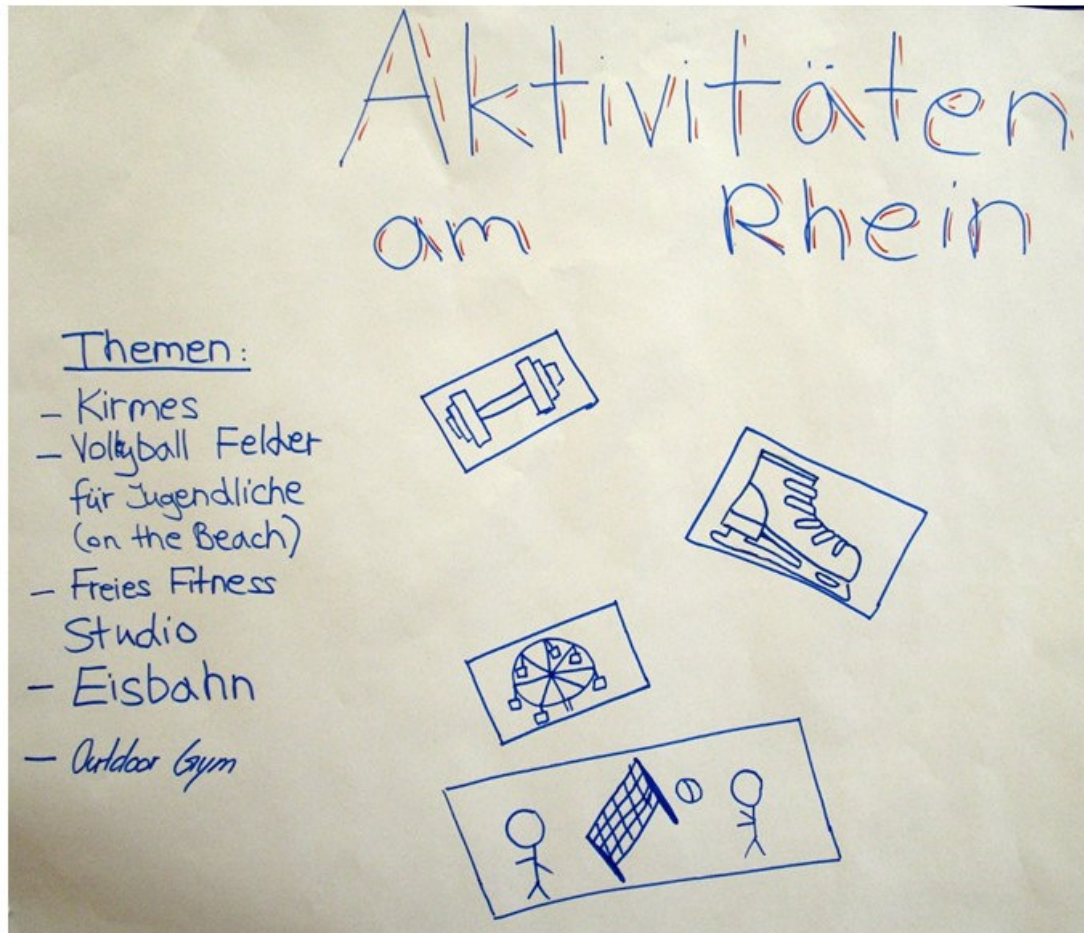 Aktivitäten
am Rhein
Themen:
- Kirmes
- Vollyball Felder
für Jugendliche
(on the Beach)
- Freies Fitness
Studio
- Eisbahn
- Outdoor Gym